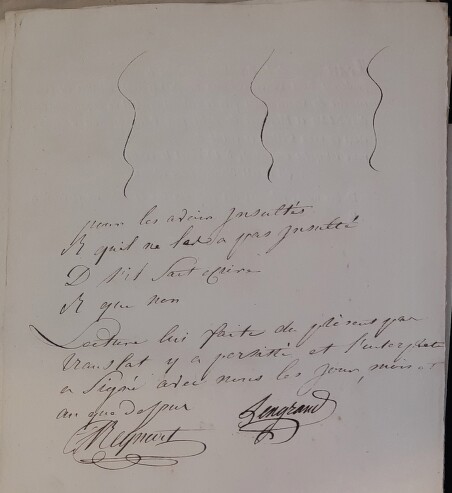 pour les avoir insultés
R qu'il ne les a pas insulté
D s'il sait écrire
R que non
Lecture lui faite du présent par
translat y a persisté et l'interprete
a signé avec nous les jour, mois et
an que dessus
Lengrand